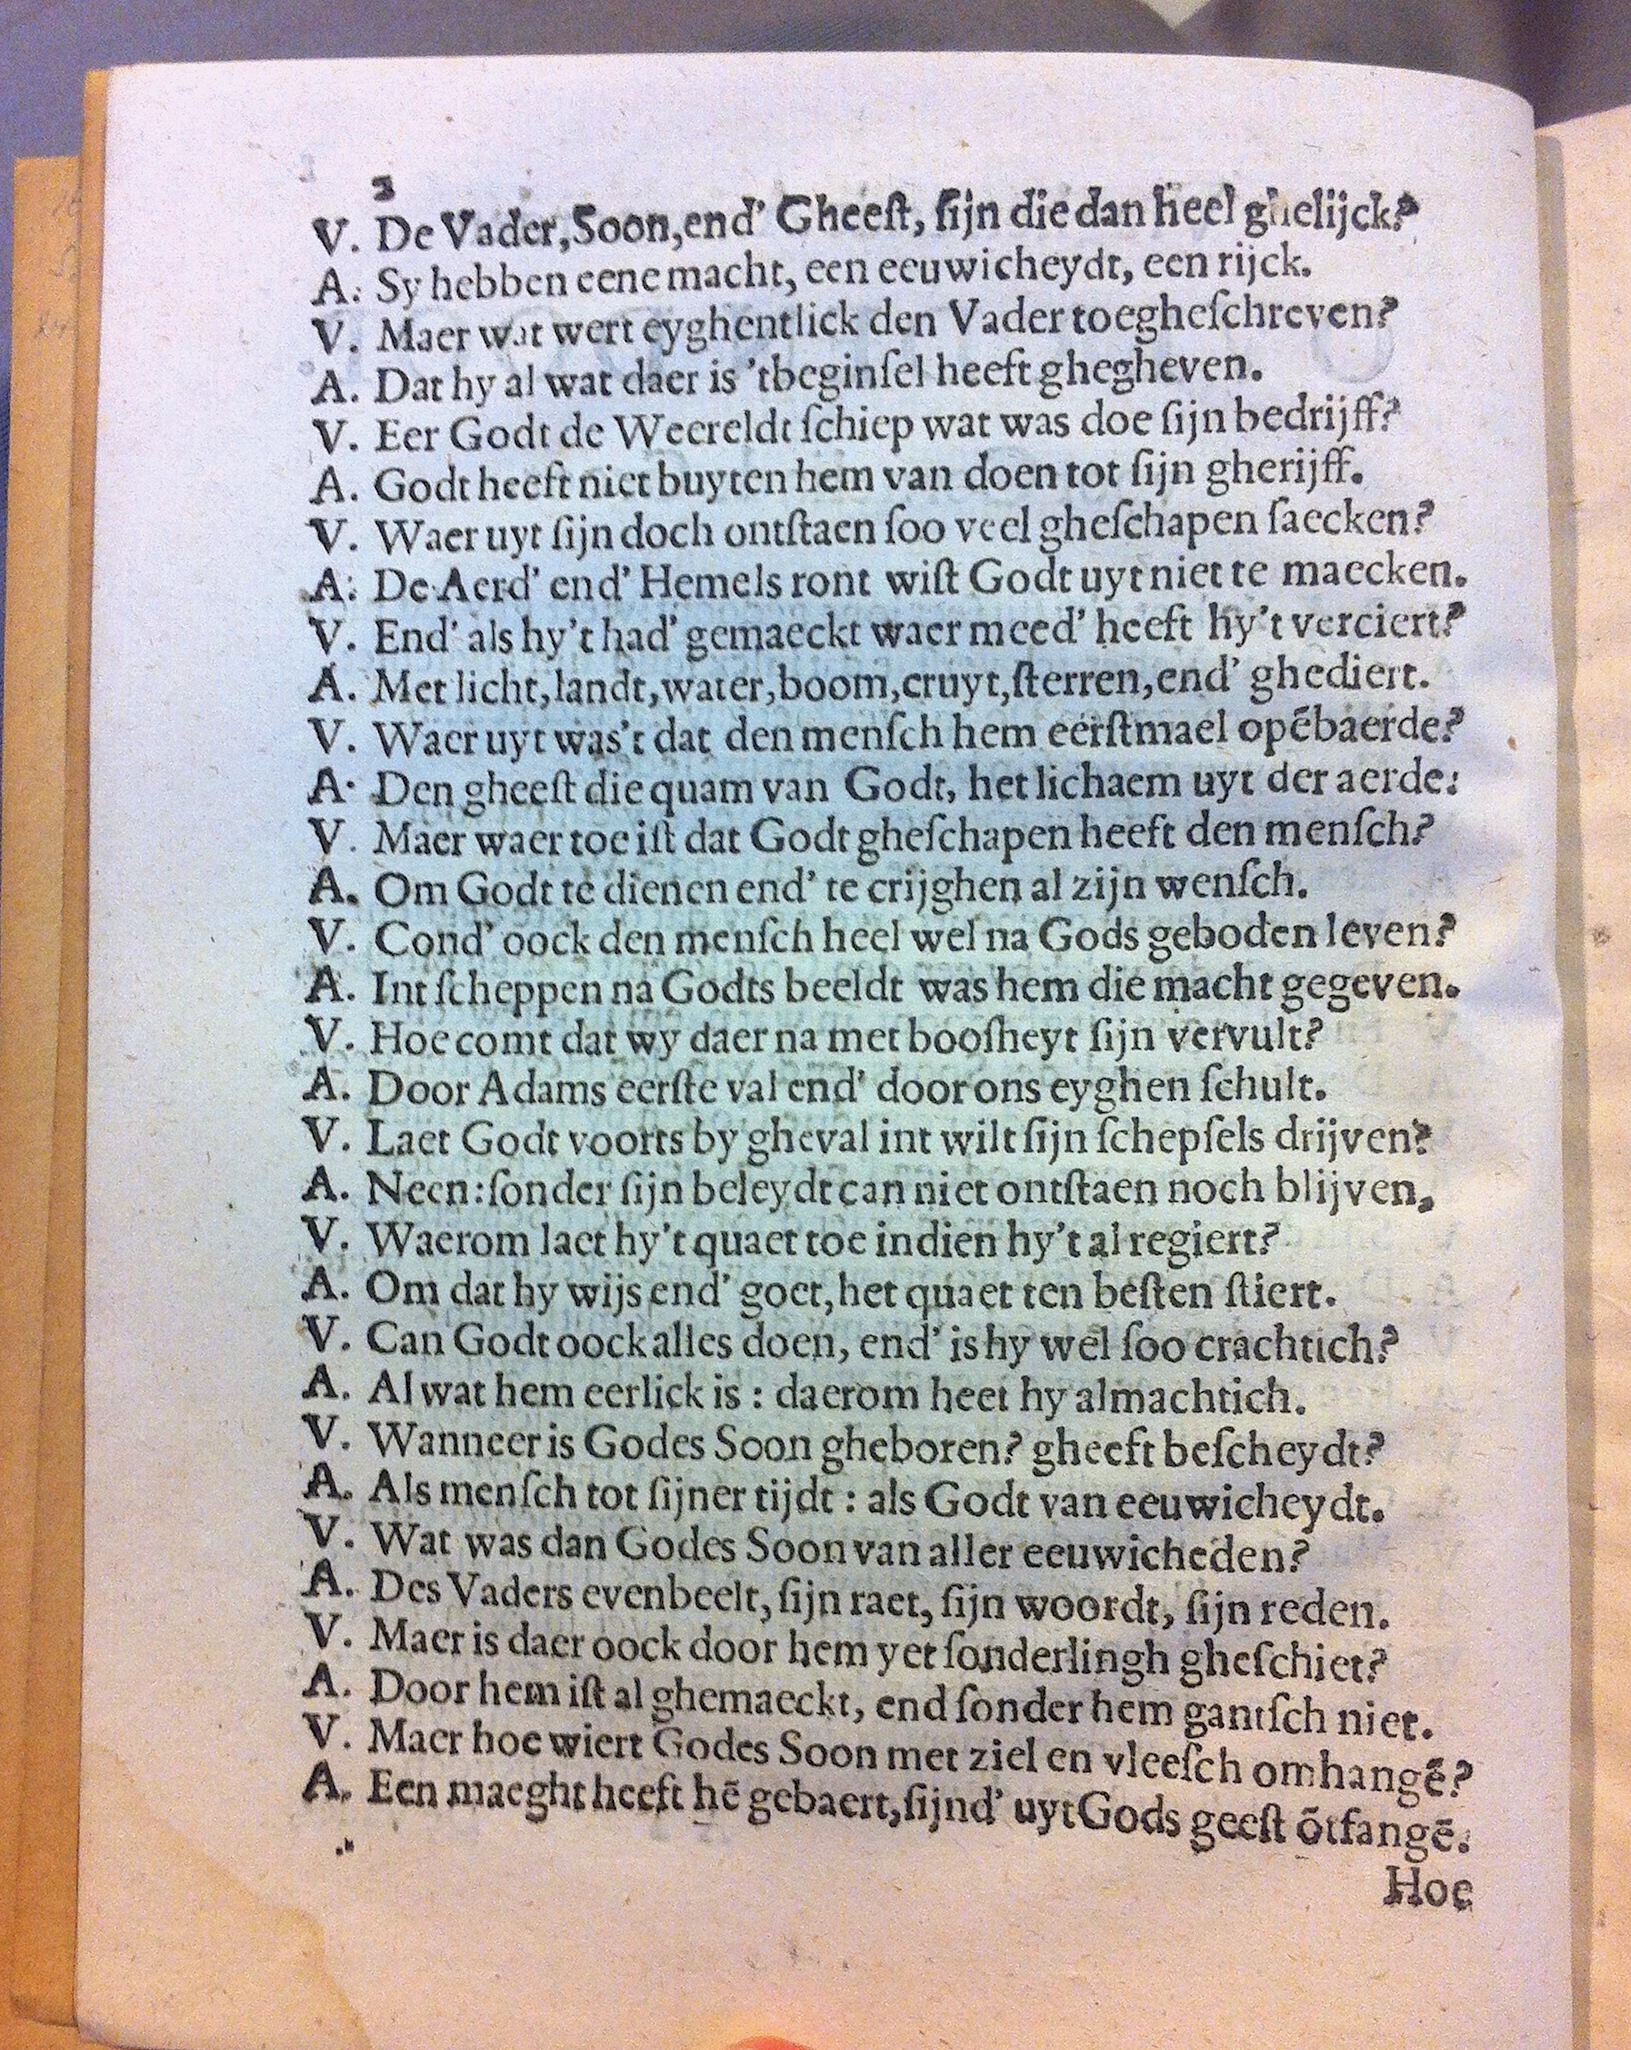 2
V. De Vader, Soon, end' Gheeſt, ſijn die dan heel ghelijck?
A. Sy hebben eene macht, een eeuwicheydt, een rijck.
V. Maer wat wert eyghentlick den Vader toegheſchreven?
A. Dat hy al wat daer is 'tbeginſel heeft ghegheven.
V. Eer Godt de Weereldt ſchiep wat was doe ſijn bedrijff?
A. Godt heeft niet buyten hem van doen tot ſijn gherijff.
V. Waer uyt ſijn doch ontſtaen ſoo veel gheſchapen ſaecken?
A. De Aerd' end' Hemels ront wiſt Godt uyt niet te maecken.
V. End' als hy't had' gemaeckt waer meed' heeft hy't verciert?
A. Met licht, landt, water, boom, cruyt, ſterren, end' ghediert.
V. Waer uyt was't dat den menſch hem eerſtmael opēbaerde?
A. Den gheeſt die quam van Godt, het lichaem uyt der aerde:
V. Maer waer toe iſt dat Godt gheſchapen heeft den menſch?
A. Om Godt te dienen end' te crijghen al zijn wenſch.
V. Cond' oock den menſch heel wel na Gods geboden leven?
A. Int ſcheppen na Godts beeldt was hem die macht gegeven.
V. Hoe comt dat wy daer na met booſheyt ſijn vervult?
A. Door Adams eerſte val end' door ons eyghen ſchult.
V. Laet Godt voorts by gheval int wilt ſijn ſchepſels drijven?
A. Neen: ſonder ſijn beleydt can niet ontſtaen noch blijven.
V. Waerom laet hy't quaet toe indien hy't al regiert?
A. Om dat hy wijs end' goet, het quaet ten beſten ſtiert.
V. Can Godt oock alles doen, end' is hy wel ſoo crachtich?
A. Al wat hem eerlick is : daerom heet hy almachtich.
V. Wanneer is Godes Soon gheboren? gheeft beſcheydt?
A. Als menſch tot ſijner tijdt : als Godt van eeuwicheydt.
V. Wat was dan Godes Soon van aller eeuwicheden?
A. Des Vaders evenbeelt, ſijn raet, ſijn woordt, ſijn reden.
V. Maer is daer oock door hem yet ſonderlingh gheſchiet?
A. Door hem iſt al ghemaeckt, end ſonder hem gantſch niet.
V. Maer hoe wiert Godes Soon met ziel en vleeſch omhangē?
A. Een maeght heeft hē gebaert, ſijnd' uyt Gods geeſt ōtfangē.
Hoe